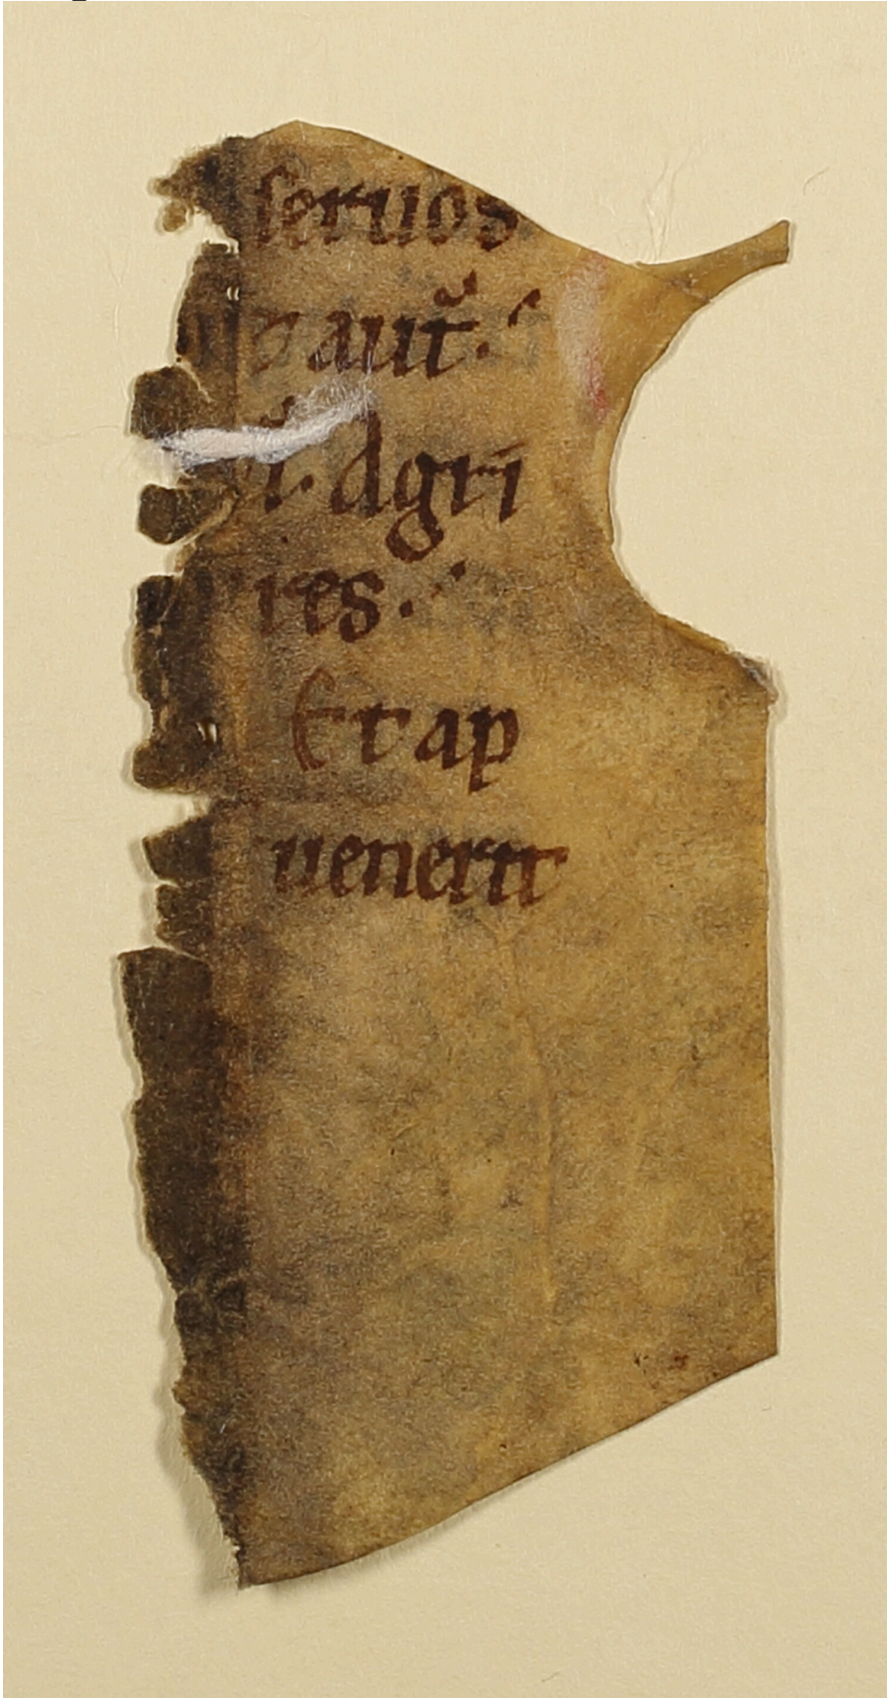 seruos
t aut̄.
Agri
res.
Et ap
uenerit